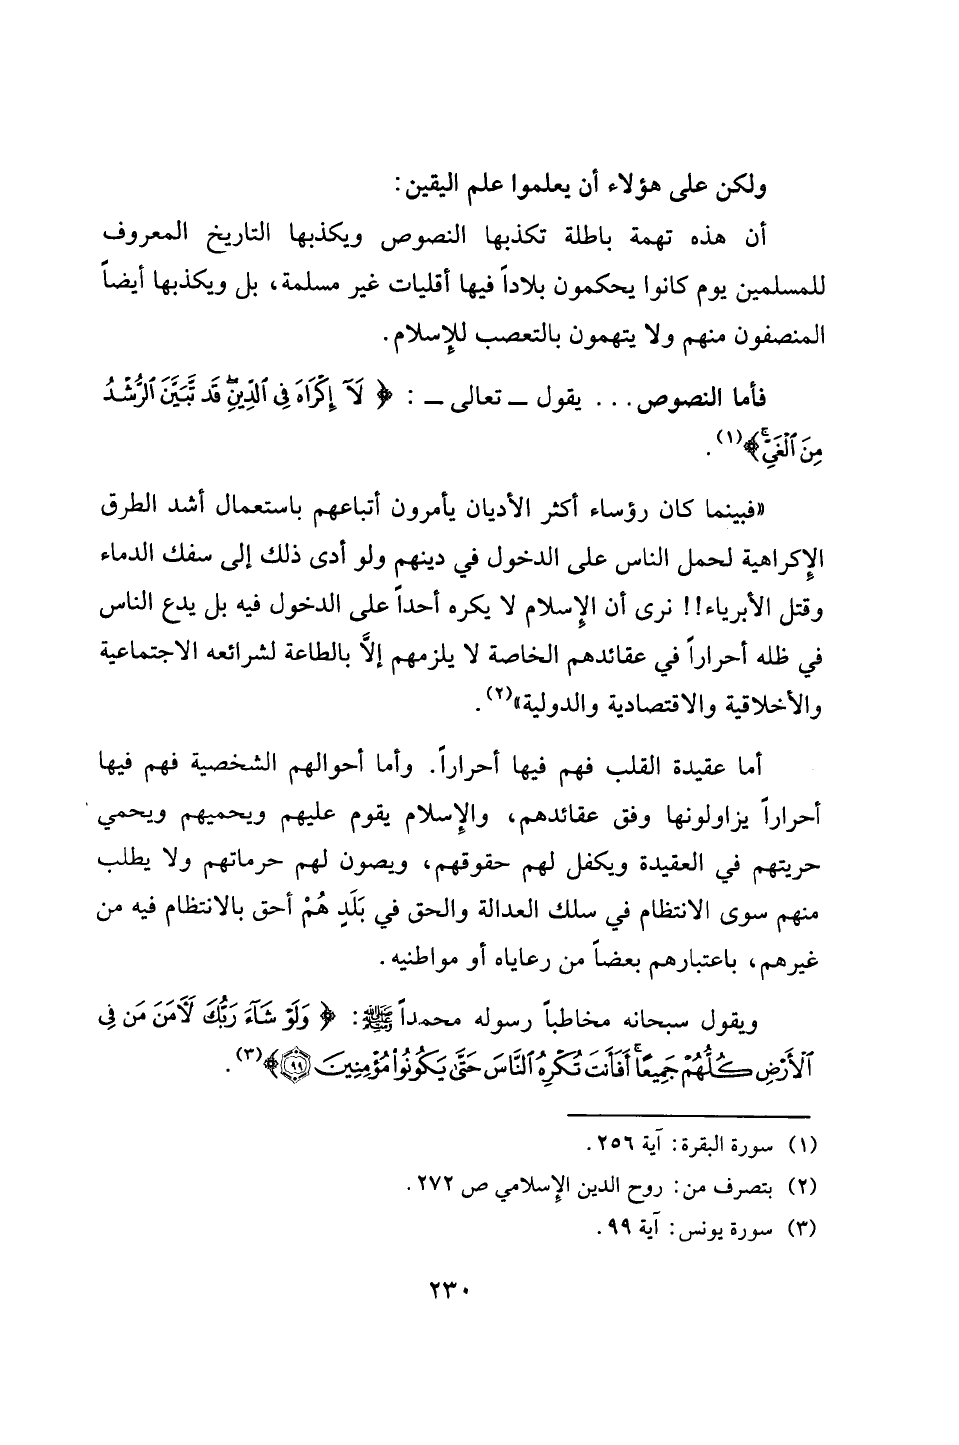 ولكن على هؤلاء أن يعلموا علم اليقين:
أن هذه تهمة باطلة تكذبها النصوص ويكذبها التاريخ المعروف
للمسلمين يوم كانوا يحكمون بلاداً فيها أقليات غير مسلمة، بل ويكذبها أيضاً
المنصفون منهم ولا يتهمون بالتعصب للإسلام.
فأما النصوص... يقول ــ تعالى ــ : ﴿ لَآ إِكْرَاهَ فِى ٱلدِّينِۖ قَد تَّبَيَّنَ ٱلرُّشْدُ
مِنَ ٱلْغَىِّۚ﴾(١).
«فبينما كان رؤساء أكثر الأديان يأمرون أتباعهم باستعمال أشد الطرق
الإكراهية لحمل الناس على الدخول في دينهم ولو أدى ذلك إلى سفك الدماء
وقتل الأبرياء!! نرى أن الإسلام لا يكره أحداً على الدخول فيه بل يدع الناس
في ظله أحراراً في عقائدهم الخاصة لا يلزمهم إلاَّ بالطاعة لشرائعه الاجتماعية
والأخلاقية والاقتصادية والدولية»(٢).
أما عقيدة القلب فهم فيها أحراراً. وأما أحوالهم الشخصية فهم فيها
أحراراً يزاولونها وفق عقائدهم، والإسلام يقوم عليهم ويحميهم ويحمي
حريتهم في العقيدة ويكفل لهم حقوقهم، ويصون لهم حرماتهم ولا يطلب
منهم سوى الانتظام في سلك العدالة والحق في بَلَدٍ هُمْ أحق بالانتظام فيه من
غيرهم، باعتبارهم بعضاً من رعاياه أو مواطنيه.
ويقول سبحانه مخاطباً رسوله محمداً ﷺ: ﴿ وَلَوْ شَآءَ رَبُّكَ لَءَامَنَ مَن فِى
ٱلْأَرْضِ كُلُّهُمْ جَمِيعًاۚ أَفَأَنتَ تُكْرِهُ ٱلنَّاسَ حَتَّىٰ يَكُونُوا۟ مُؤْمِنِينَ ۝٩٩﴾(٣).
(١) سورة البقرة: آية ٢٥٦.
(٢) بتصرف من: روح الدين الإسلامي ص ٢٧٢.
(٣) سورة يونس: آية ٩٩.
٢٣٠